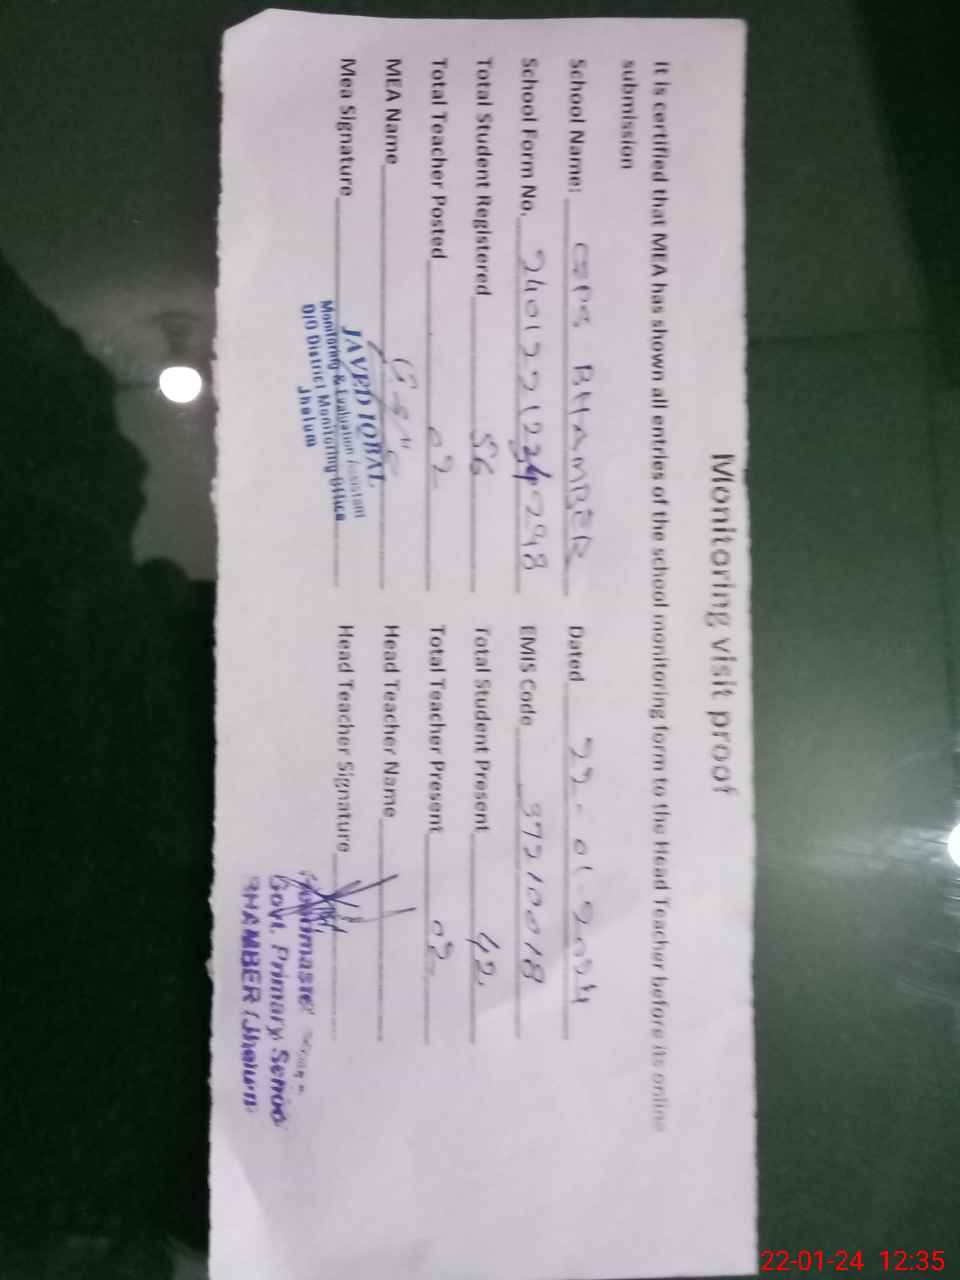 Monitoring visit proof
It is certified that MEA has shown all entries of the school monitoring form to the Head Teacher before its online
submission
School Name: GPS BHAMBER Dated 22-01-2024
School Form No. EMIS Code 37210018
Total Student Registered 56 Total Student Present 42
Total Teacher Posted 02 Total Teacher Present 02
MEA Name Head Teacher Name
Mea Signature Head Teacher Signature
JAVED IQBAL
Monitoring & Evaluation Assistant
O/O District Monitoring Office
Jhelum
Headmaster
Govt. Primary School
BHAMBER (Jhelum)
22-01-24 12:35